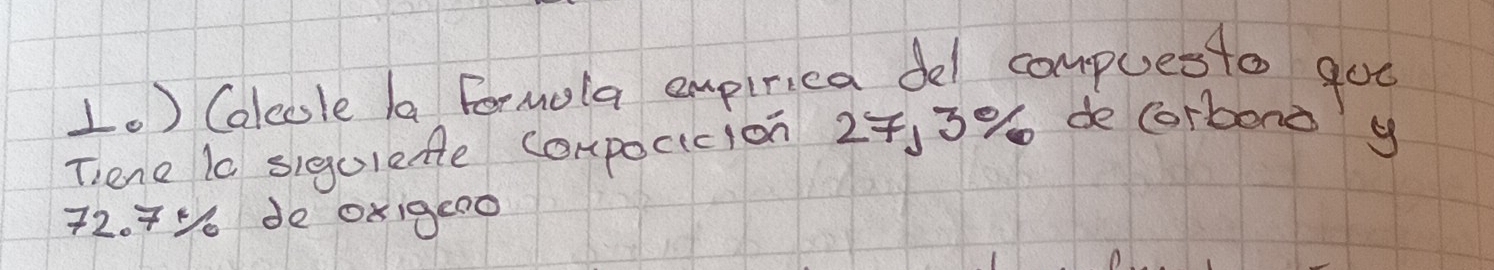 1.) Calcule la formula empirica del compuesto que
Tiene la siguiente compocición 27,3% de carbono y
72.7% de oxigeno